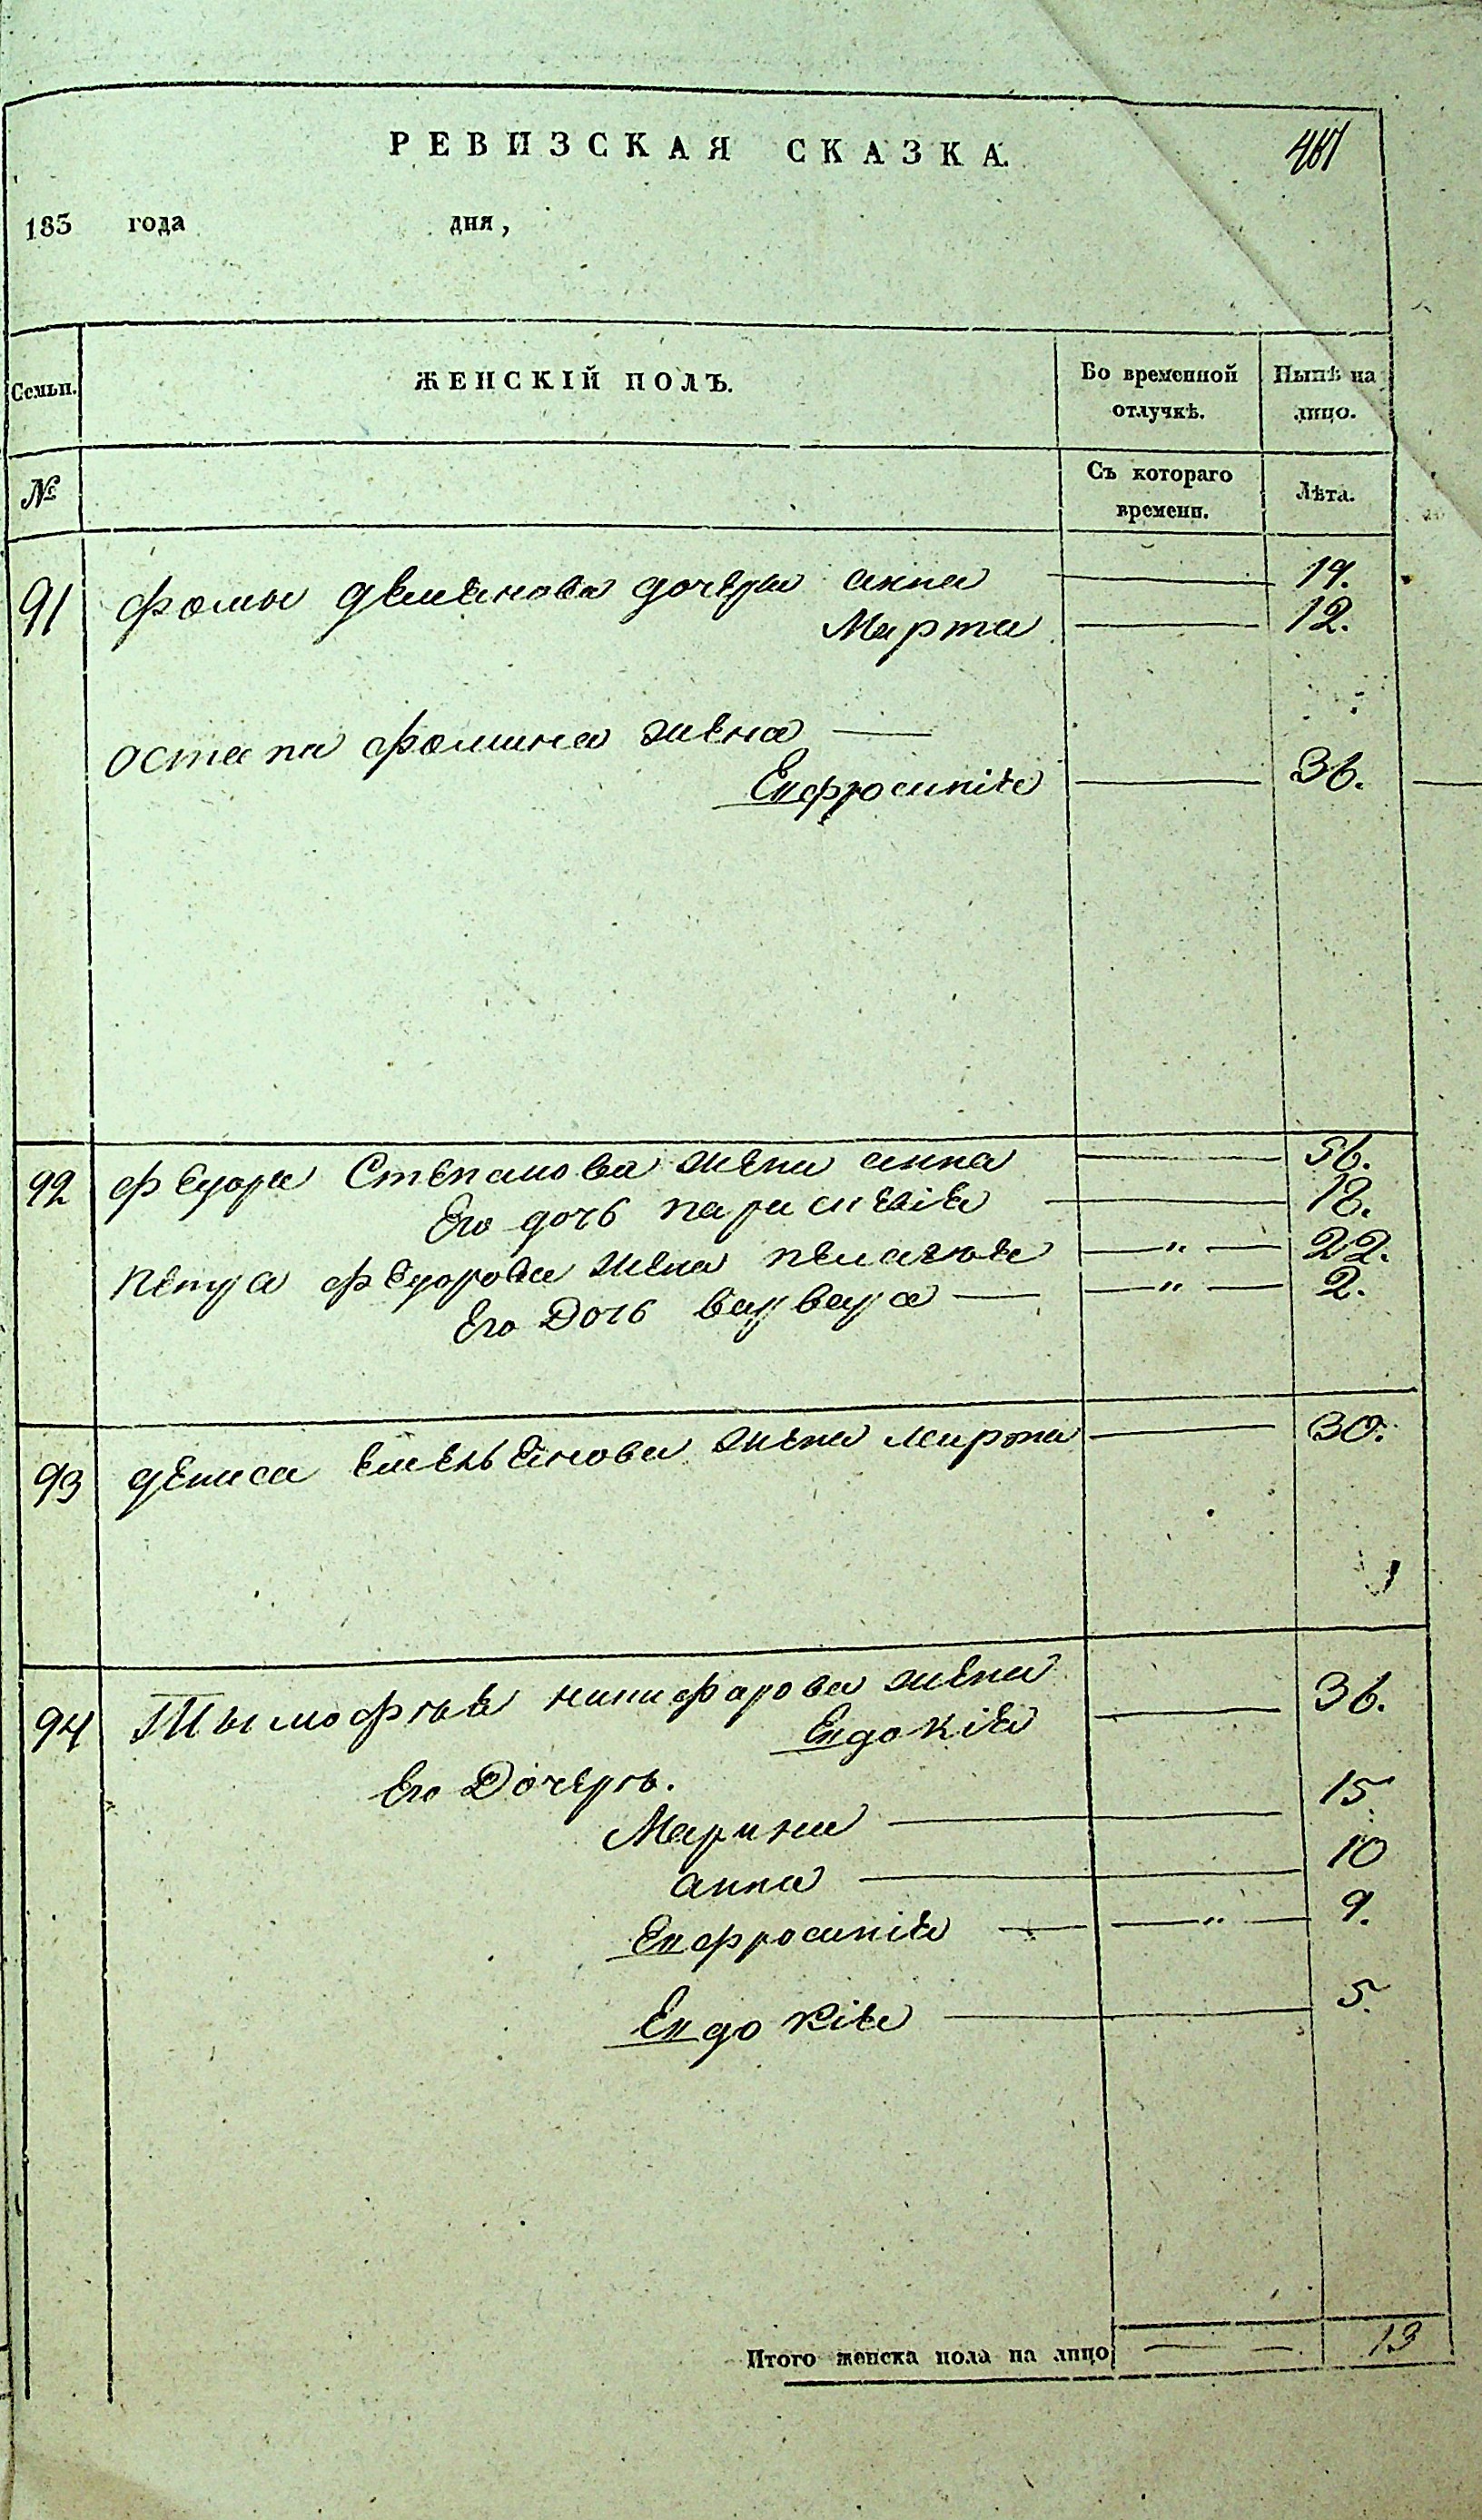 РЕВИЗСКАЯ СКАЗКА.
183 года дня,
Семьи. ЖЕНСКІЙ ПОЛЪ. Во временной отлучкѣ. Нынѣ на лицо.
№ Съ котораго времени. Лѣта.
91 фомы демьянова дочери анна 19.
Марта 12.
остапа фомина жена
Енфросиніе 36.
92 федора Степанова жена анна 56.
Его дочь парасковіе 18.
петра федорова жена пелагѣе 22.
Его Дочь варвара 2.
93 дениса емельянова жена марта 30.
94 Тымофѣѣ никифарова жена 36.
Евдокіе
Его Дочерѣ.
Марина 15
анна 10
Ефросиніе 9.
Евдокіе 5.
Итого женска пола на лицо 13